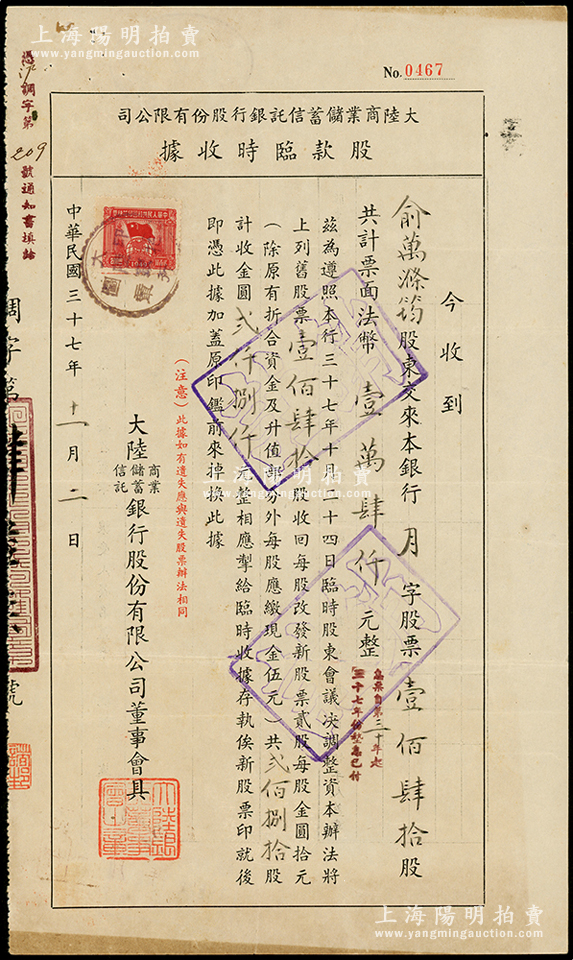 上海陽明拍賣
www.yangmingauction.com
No. 0467
大陸商業儲蓄信託銀行股份有限公司
股款臨時收據
今收到
俞萬滌筠股東交來本銀行月字股票壹佰肆拾股
共計票面法幣壹萬肆仟元整
息票自第三十年起
三十七年份整息已付
茲為遵照本行三十七年十月二十四日臨時股東會議决調整資本辦法將
上列舊股票壹佰肆拾股收回每股改發新股票貳股每股金圓拾元
(除原有折合資金及升值部分外每股應繳現金伍元)共貳佰捌拾股
計收金圓貳仟捌仟元整相應掣給臨時收據存執俟新股票印就後
即憑此據加蓋原印鑑前來掉換此據
(注意)此據如有遺失應與遺失股票辦法相同
大陸商業儲蓄信託銀行股份有限公司董事會具
中華民國三十七年十一月二日
憑調字第209號通知書填給
調字第肆
號
上海陽明拍賣
www.yangmingauction.com
上海陽明拍賣
www.yangmingauction.com